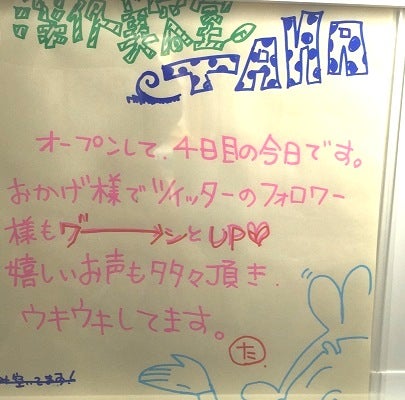 TANA
オープンして、4日目の今日です。
おかげ様でツイッターのフォロワー
様もグーーーンとUP♡
嬉しいお声も多々頂き、
ウキウキしてます。
た